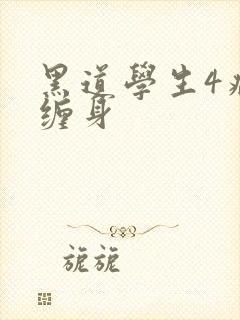 黑道學生4
缠身
旎旎